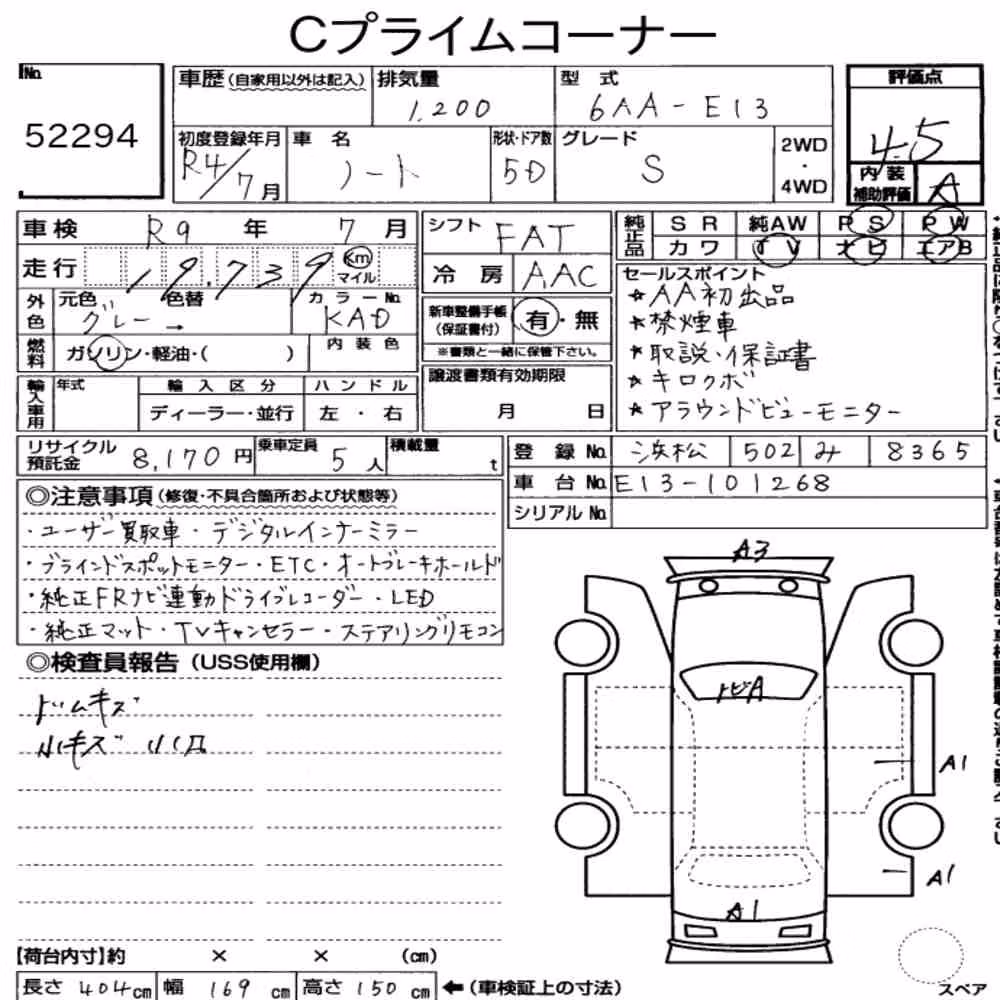 Cプライムコーナー
No.
52294
車歴(自家用以外は記入)
排気量
1,200
型 式
6AA-E13
評価点
4.5
初度登録年月
R4/7月
車 名
ノート
形状・ドア数
5D
グレード
S
2WD
・
4WD
内装
補助評価
A
車検 R9 年 7 月
シフト FAT
純正品
SR 純AW PS PW
カワ TV ナビ エアB
走行 19,739 Km
マイル
冷 房 AAC
セールスポイント
★AA初出品
★禁煙車
★取説・保証書
★キロクボ
★アラウンドビューモニター
外色
元色 色替
グレー →
カラーNo.
KAD
新車整備手帳
(保証書付)
有・無
※書類と一緒に保管下さい。
燃料
ガソリン・軽油・( )
内装色
輸入車用
年式
輸入区分
ディーラー・並行
ハンドル
左・右
譲渡書類有効期限
月 日
リサイクル
預託金
8,170円
乗車定員
5人
積載量
t
登 録 No. 浜松 502 み 8365
車 台 No. E13-101268
シリアル No.
◎注意事項(修復・不具合箇所および状態等)
・ユーザー買取車・デジタルインナーミラー
・ブラインドスポットモニター・ETC・オートブレーキホールド
・純正FRナビ連動ドライブレコーダー・LED
・純正マット・TVキャンセラー・ステアリングリモコン
◎検査員報告(USS使用欄)
ドムキズ
小キズ 小凹
A3
トビA
A1
A1
A1
【荷台内寸】約 × × (cm)
長さ 404cm 幅 169cm 高さ 150cm ←(車検証上の寸法)
スペア